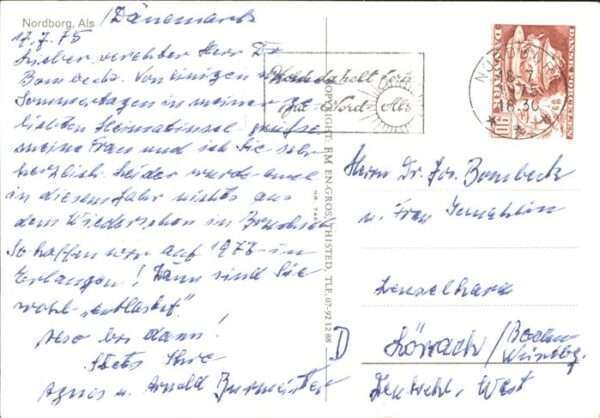 Nordborg, Als
/Dänemark
17.7.75
Lieber, verehrter Herr Dr.
Bombeck. Von einigen
Sommertagen in meiner ge-
liebten Heimatinsel grüße
meine Frau und ich Sie sehr
herzlich. Leider wurde auch
in diesem Jahr nichts aus
dem Wiedersehen in
So hoffen wir auf 1977 in
Erlangen! Dann sind Sie
wohl "entlastet".
Also bis dann!
Stets Ihre
Agnes u. Arnold Burmeister
COPYRIGHT: RM EN-GROS, THISTED, TLF. 07-92 12 88
ferie
på Nord-Als
NORDBORG
17.75
18.30
DANMARK
90
Herrn Dr. Jos. Bombeck
u. Frau Gemahlin
Lörrach/Baden-
Württbg.
D
West